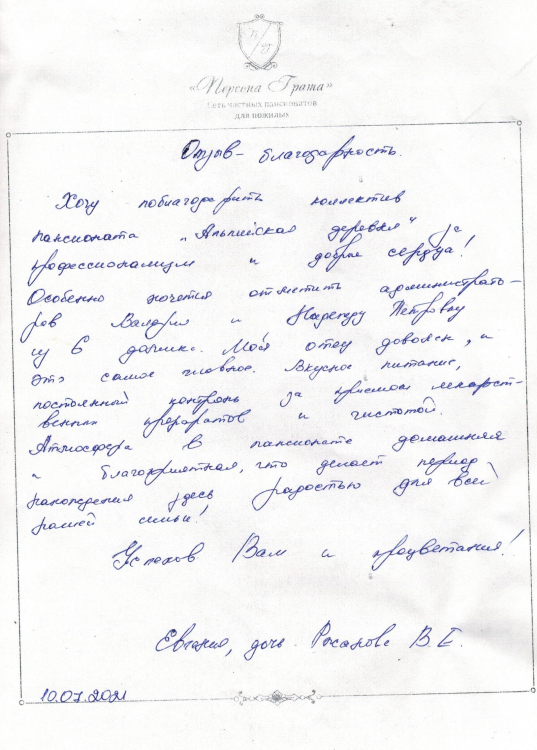 «Персона Грата»
Сеть частных пансионатов
для пожилых
Отзыв - благодарность.
Хочу поблагодарить коллектив
пансионата „Альпийская деревня" за
профессионализм и добрые сердца!
Особенно хочется отметить администрато-
ров Валерия и Надежду Петровну
из 6 домика. Мой отец доволен, и
это самое главное. Вкусное питание,
постоянный контроль за приемом лекарст-
венных препаратов и чистотой.
Атмосфера в пансионате домашняя
и благоприятная, что делает период
нахождения здесь радостью для всей
нашей семьи!
Успехов Вам и процветания!
Евгения, дочь В.Е.
10.07.2021